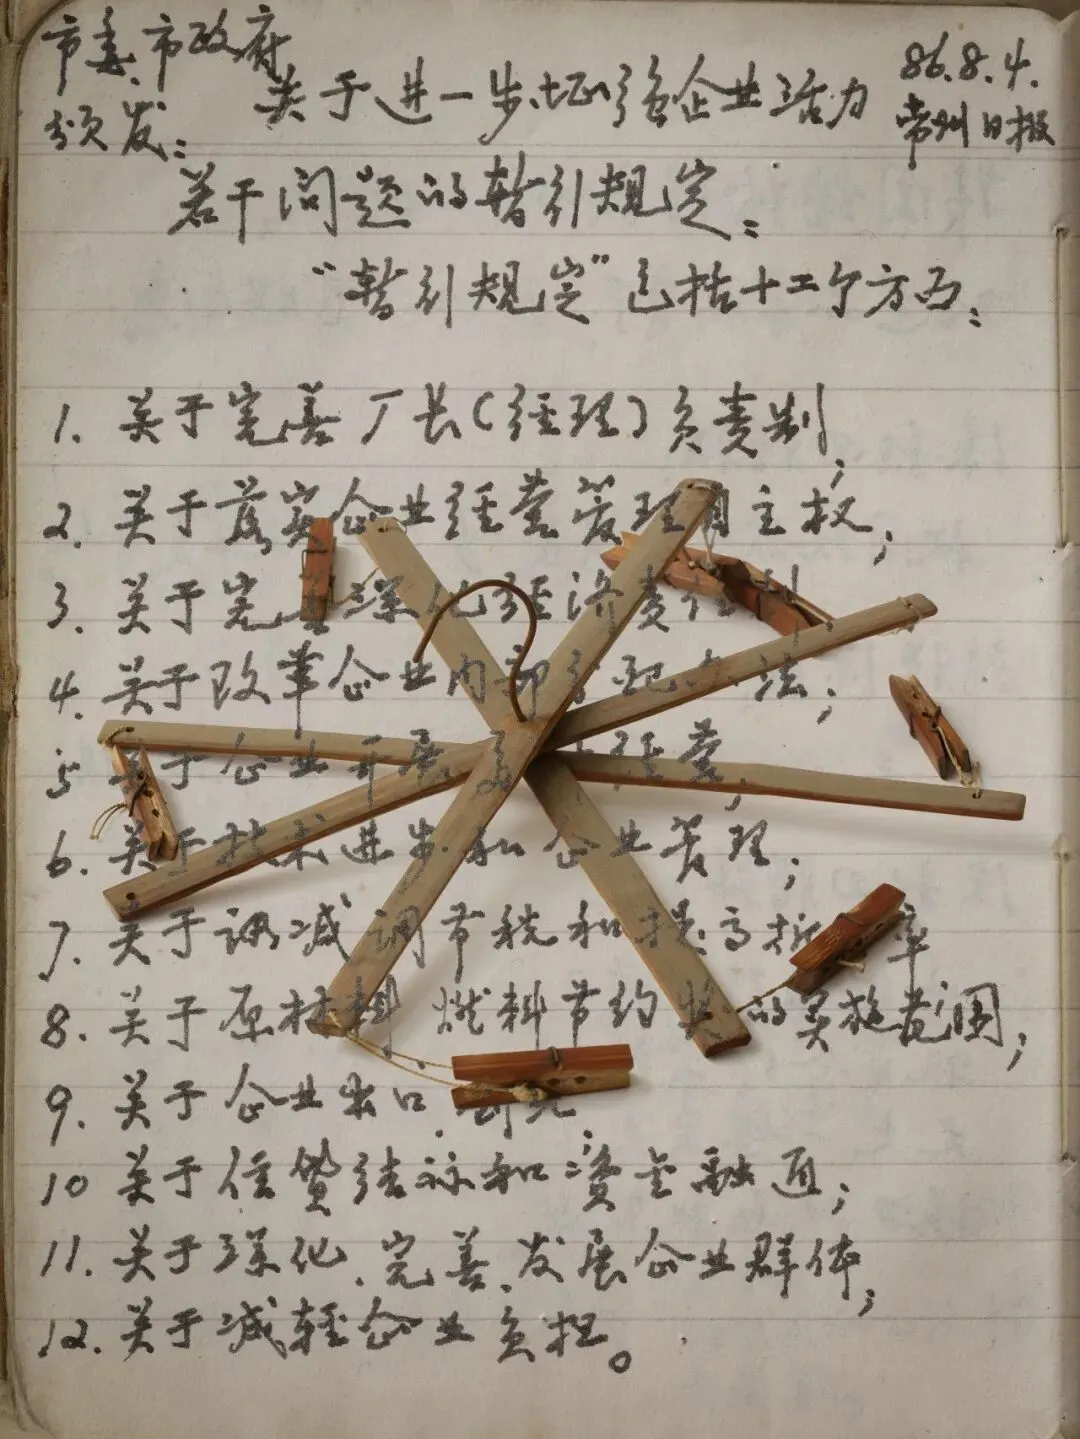 市委、市政府
颁发：
关于进一步增强企业活力
86.8.4.
常州日报
若干问题的暂行规定：
“暂行规定”包括十二个方面：
1. 关于完善厂长（经理）负责制；
2. 关于落实企业经营管理自主权；
3. 关于完善深化经济责任制
4. 关于改革企业内部分配办法；
5 关于企业开展 经营；
6. 关于技术进步和企业管理；
7. 关于调减调节税和提高折 率
8. 关于原材料 燃料节约奖的实施范围；
9. 关于企业出口
10 关于信贷结 和资金融通；
11. 关于深化、完善、发展企业群体；
12. 关于减轻企业负担。